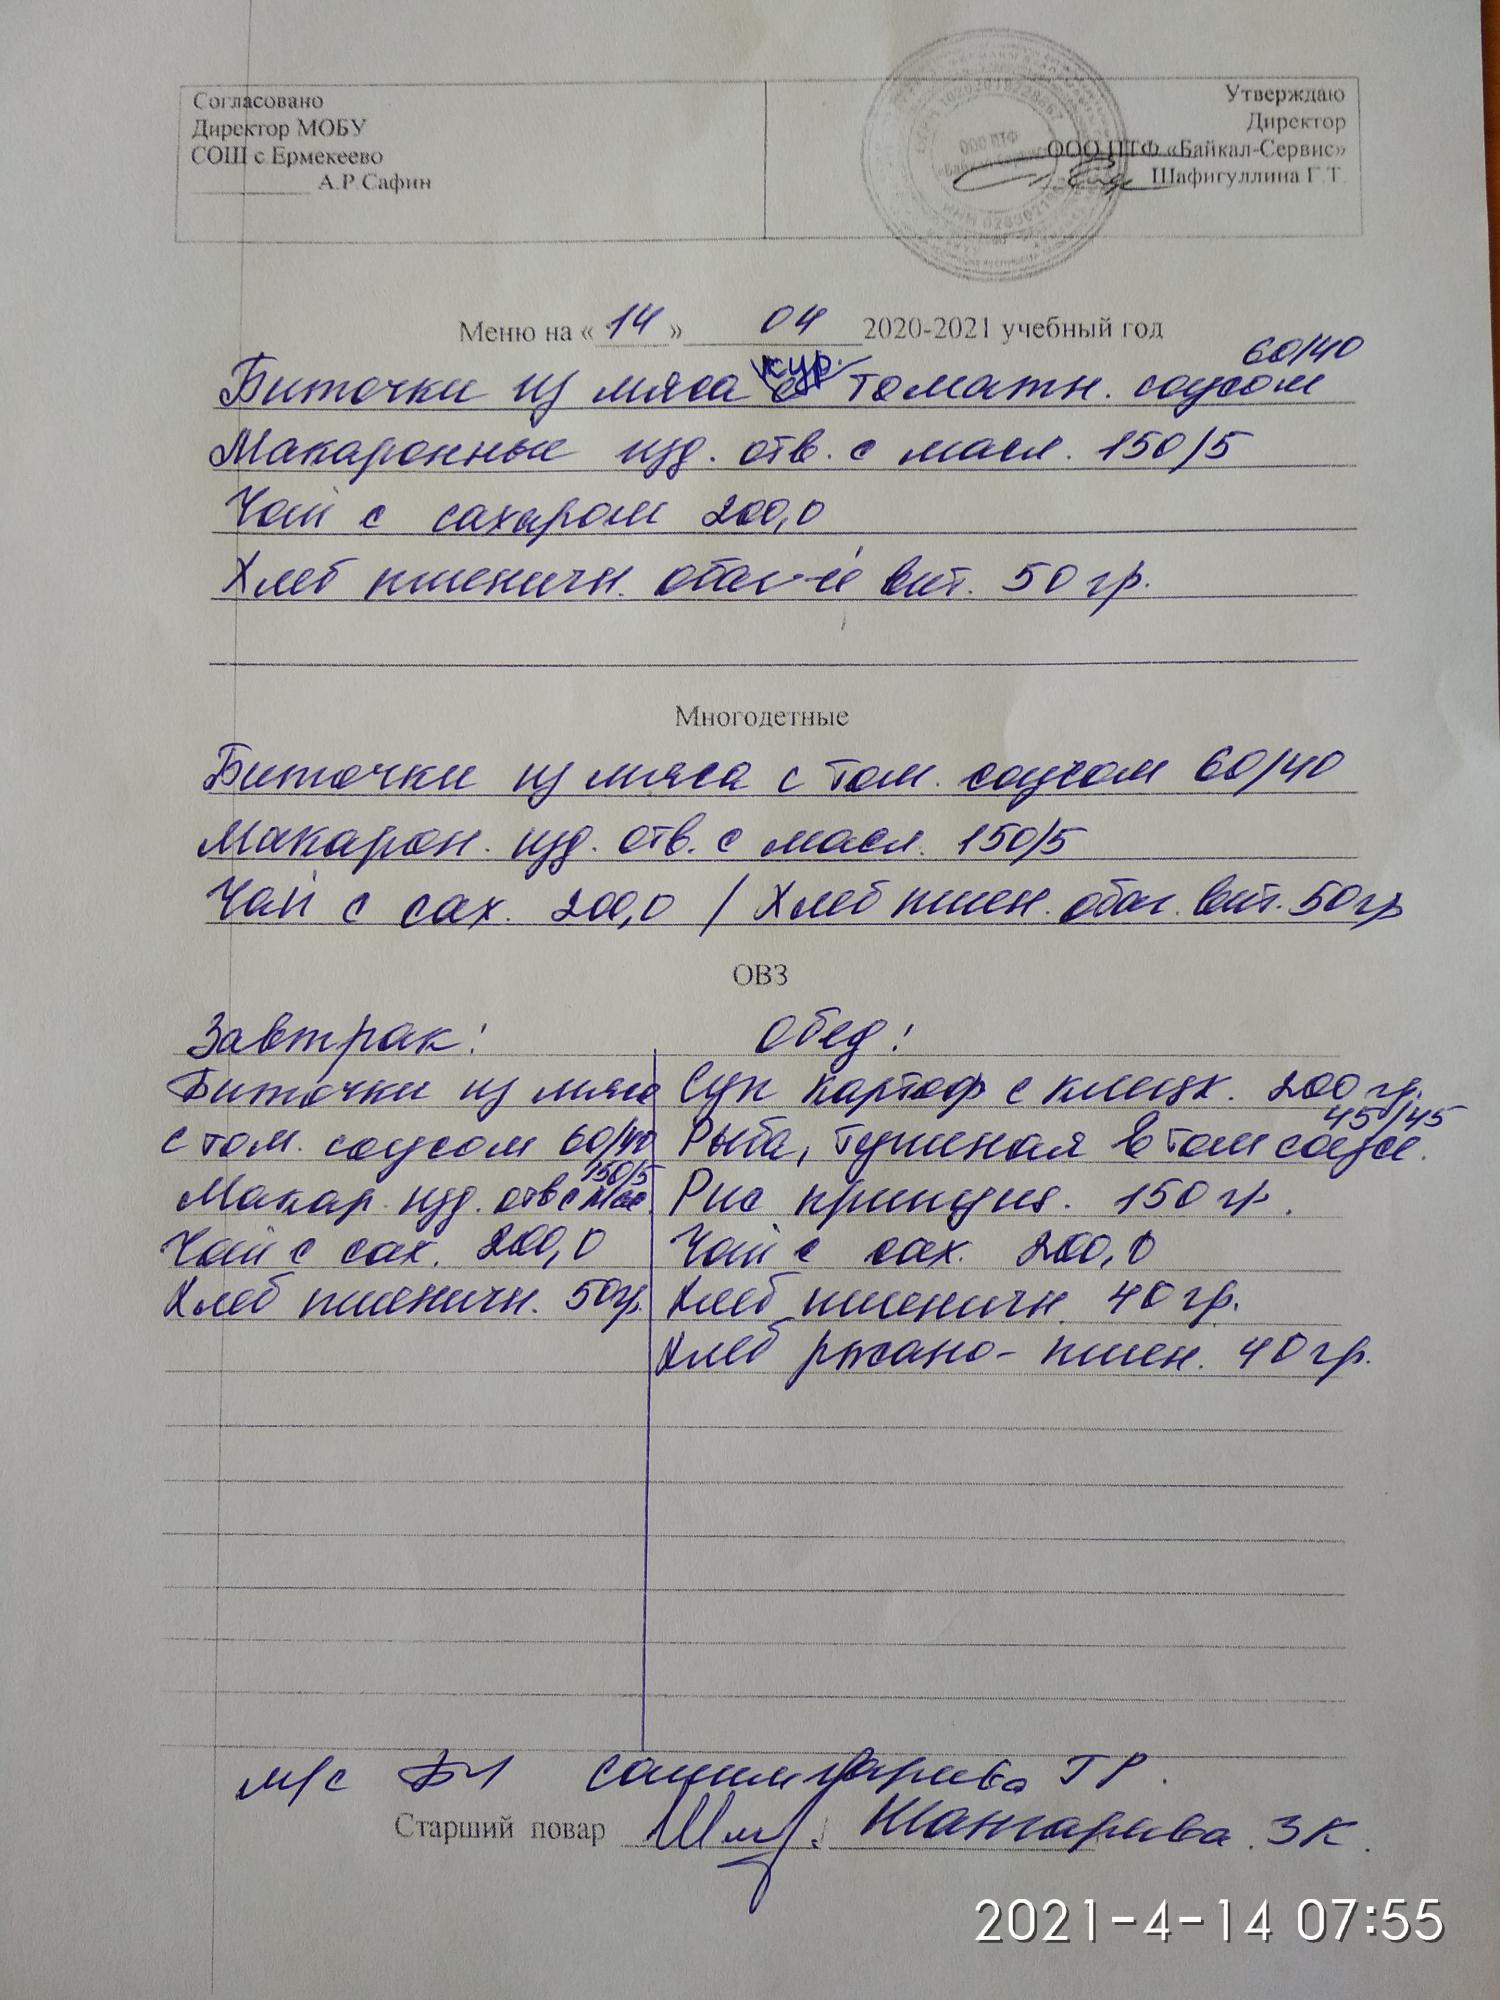 Согласовано
Директор МОБУ
СОШ с.Ермекеево
А.Р.Сафин
Утверждаю
Директор
ООО ПТФ «Байкал-Сервис»
Шафигуллина Г.Т.
ООО ПТФ
Меню на « 14 » 04 2020-2021 учебный год
Биточки из мяса кур. с томатн. соусом 60/40
Макаронные изд. отв. с масл. 150/5
Чай с сахаром 200,0
Хлеб пшеничн. обог-й вит. 50 гр.
Многодетные
Биточки из мяса с том. соусом 60/40
Макарон. изд. отв. с масл. 150/5
Чай с сах. 200,0 / Хлеб пшен. обог. вит. 50 гр
ОВЗ
Завтрак:
Биточки из мяса
с том. соусом 60/40
Макар. изд. отв с мас. 150/5
Чай с сах. 200,0
Хлеб пшеничн. 50гр.
Обед:
Суп картоф с клецк. 200 гр.
Рыба, тушеная в том соусе. 45/45
Рис припущ. 150 гр.
Чай с сах. 200,0
Хлеб пшеничн. 40 гр.
Хлеб ржано-пшен. 40 гр.
м/с Г Р.
Старший повар Шангареева З К.
2021-4-14 07:55